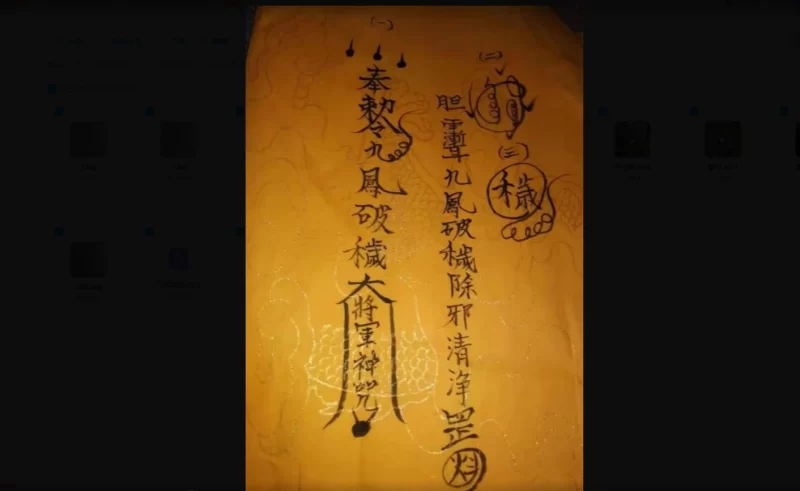 (一)
奉勅令九鳳破穢大將軍神咒
(二)
(三)
穢
九鳳破穢除邪清净罡